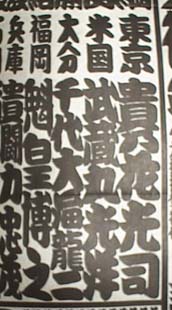 東京 貴乃花光司
米国 武蔵丸光洋
大分 千代大海龍二
福岡 魁皇博之
兵庫 貴闘力忠茂